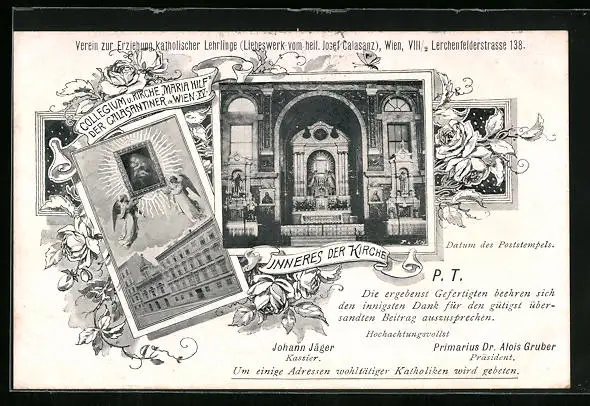 Verein zur Erziehung katholischer Lehrlinge (Liebeswerk vom heil. Josef Calasanz), Wien, VIII/2 Lerchenfelderstrasse 138.
COLLEGIUM u. KIRCHE „MARIA HILF“
DER CALASANTINER IN WIEN XV.
INNERES DER KIRCHE
Datum des Poststempels.
P. T.
Die ergebenst Gefertigten beehren sich
den innigsten Dank für den gütigst über-
sandten Beitrag auszusprechen.
Hochachtungsvollst
Johann Jäger
Kassier.
Primarius Dr. Alois Gruber
Präsident.
Um einige Adressen wohltätiger Katholiken wird gebeten.